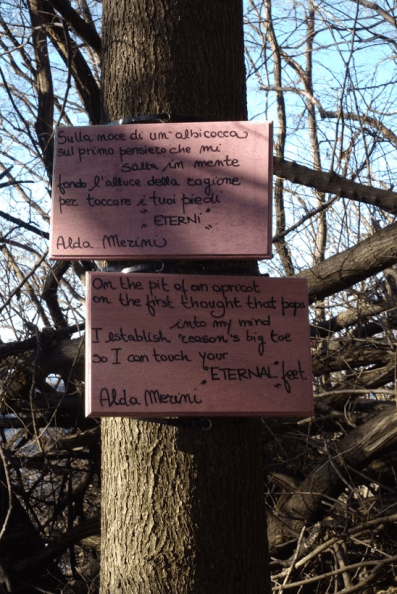 Sulla noce di un albicocca
sul primo pensiero che mi
salta in mente
fondo l'alluce della ragione
per toccare i tuoi piedi
"ETERNI"
Alda Merini
On the pit of an apricot
on the first thought that pops
into my mind
I establish reason's big toe
so I can touch your
"ETERNAL" feet
Alda Merini